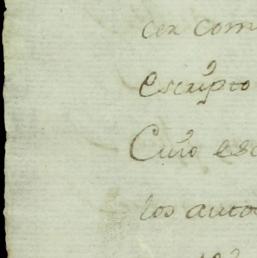 cer com
escripto
Cuio esc
los auto